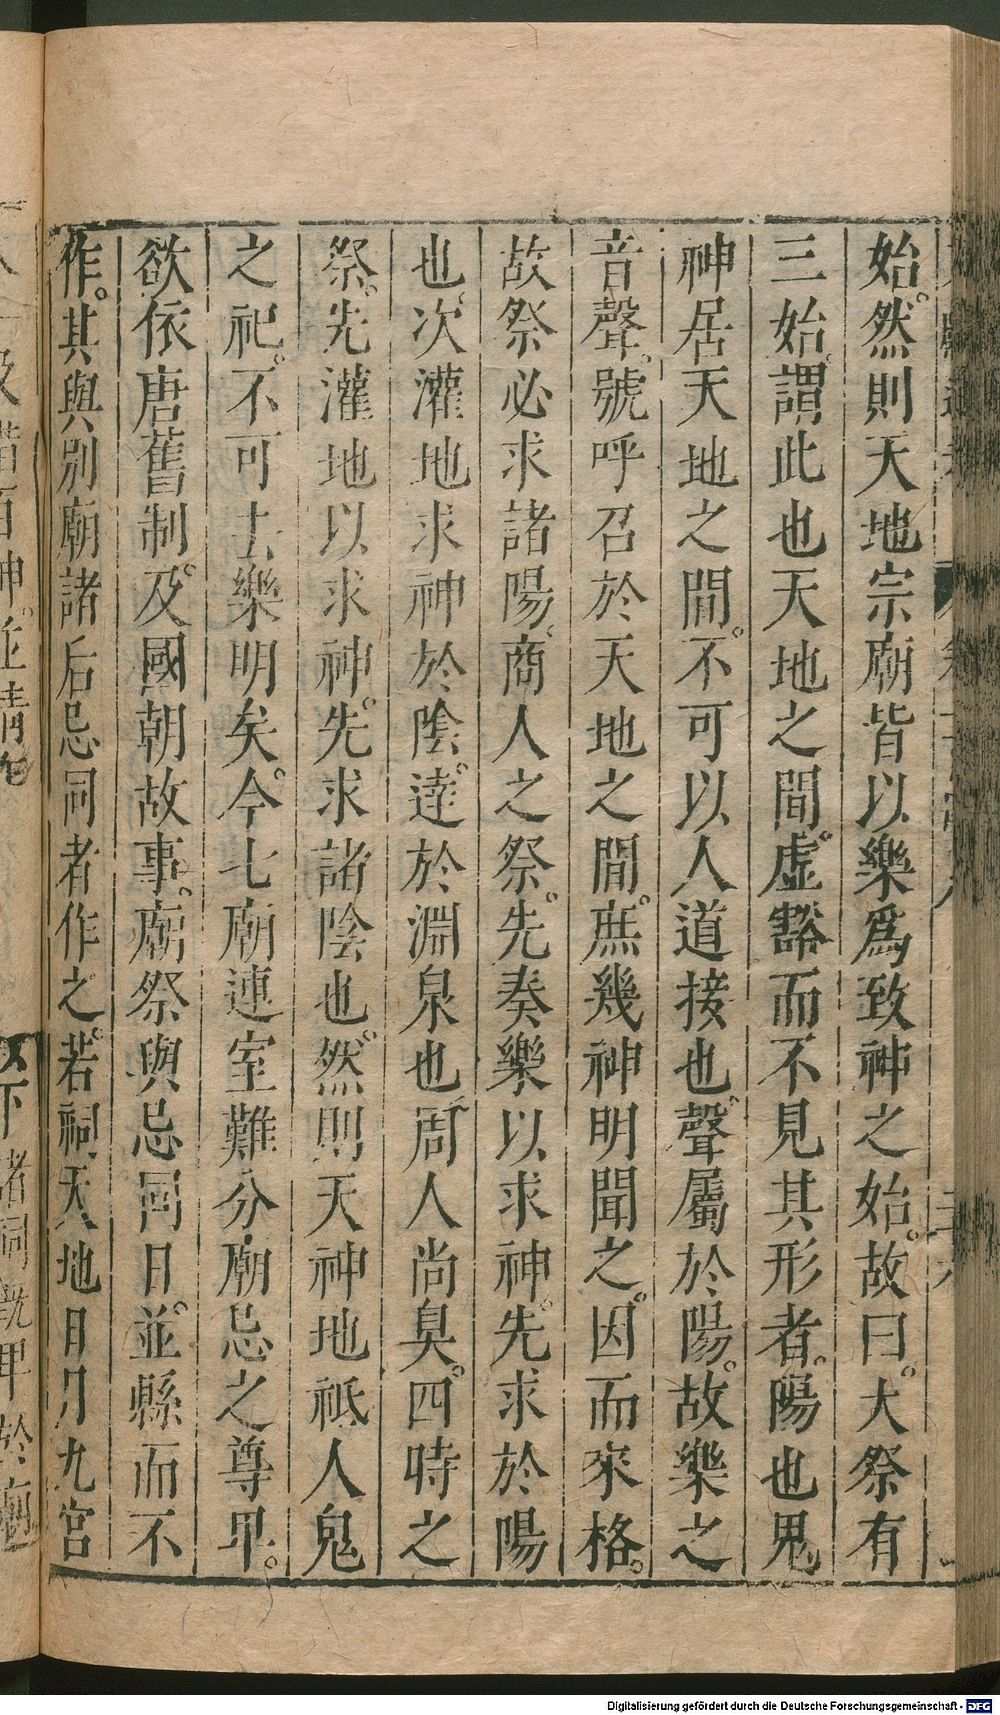 始。然則天地宗廟皆以樂爲致神之始。故曰。大祭有
三始。謂此也天地之間。虛豁而不見其形者。陽也鬼
神居天地之間。不可以人道接也。聲屬於陽。故樂之
音聲。號呼召於天地之間。庶幾神明聞之。因而來格。
故祭必求諸陽。商人之祭。先奏樂以求神。先求於陽
也。次灌地求神於陰。達於淵泉也周人尚臭。四時之
祭。先灌地以求神。先求諸陰也。然則天神地祇人鬼
之祀。不可去樂明矣。今七廟連室難分廟忌之尊卑。
欲依唐舊制。及國朝故事。廟祭與忌同日。並縣而不
作。其與別廟諸后忌同者作之。若祠天地日月九宮
Digitalisierung gefördert durch die Deutsche Forschungsgemeinschaft - DFG